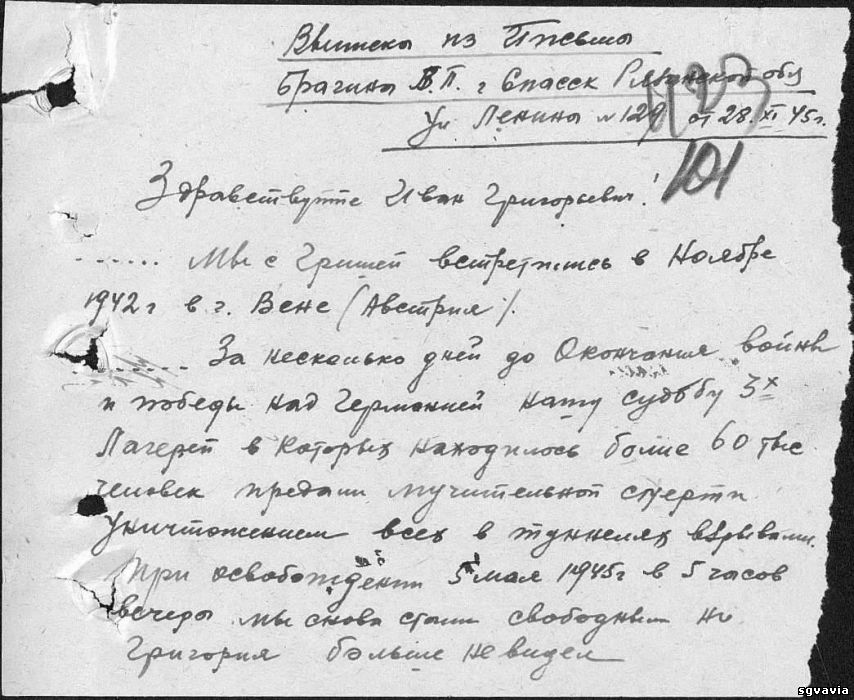 Выписка из Письма
Брагина В.П. г Спасск Рязанской обл
Ул Ленина №129 от 28.XI 45г.
101
Здравствуйте Иван Григорьевич!
....... Мы с Гришей встретились в Ноябре
1942г в г. Вене (Австрия).
...... За несколько дней до Окончания войны
и победы над Германией нашу судьбу 3х
Лагерей в которых находилось более 60 тыс
человек предали мучительной смерти
Уничтожением всех в туннелях взрывами.
При освобождении 5 мая 1945г в 5 часов
вечера мы снова стали свободными но
Григория больше не видел
sgvavia